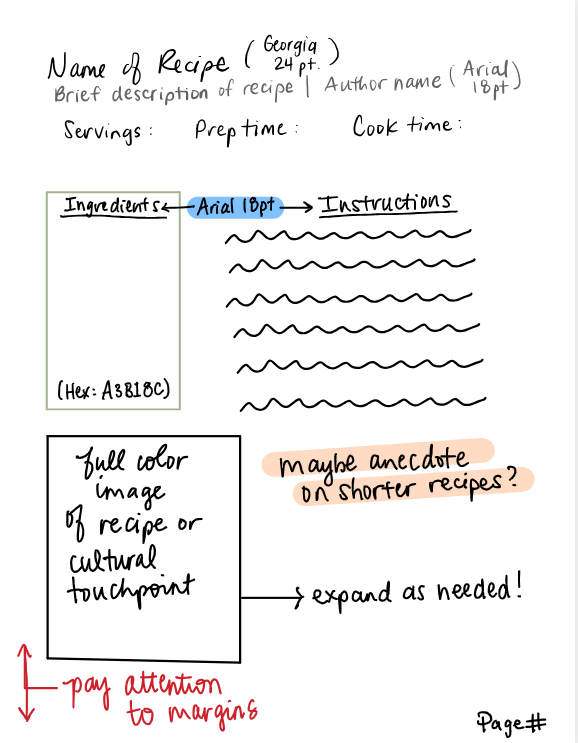 Name of Recipe (Georgia 24 pt.)
Brief description of recipe | Author name (Arial 18pt)
Servings: Prep time: Cook time:
Ingredients ← Arial 18pt → Instructions
(Hex: A3B18C)
full color
image
of recipe or
cultural
touchpoint
maybe anecdote
on shorter recipes?
expand as needed!
pay attention
to margins
Page#